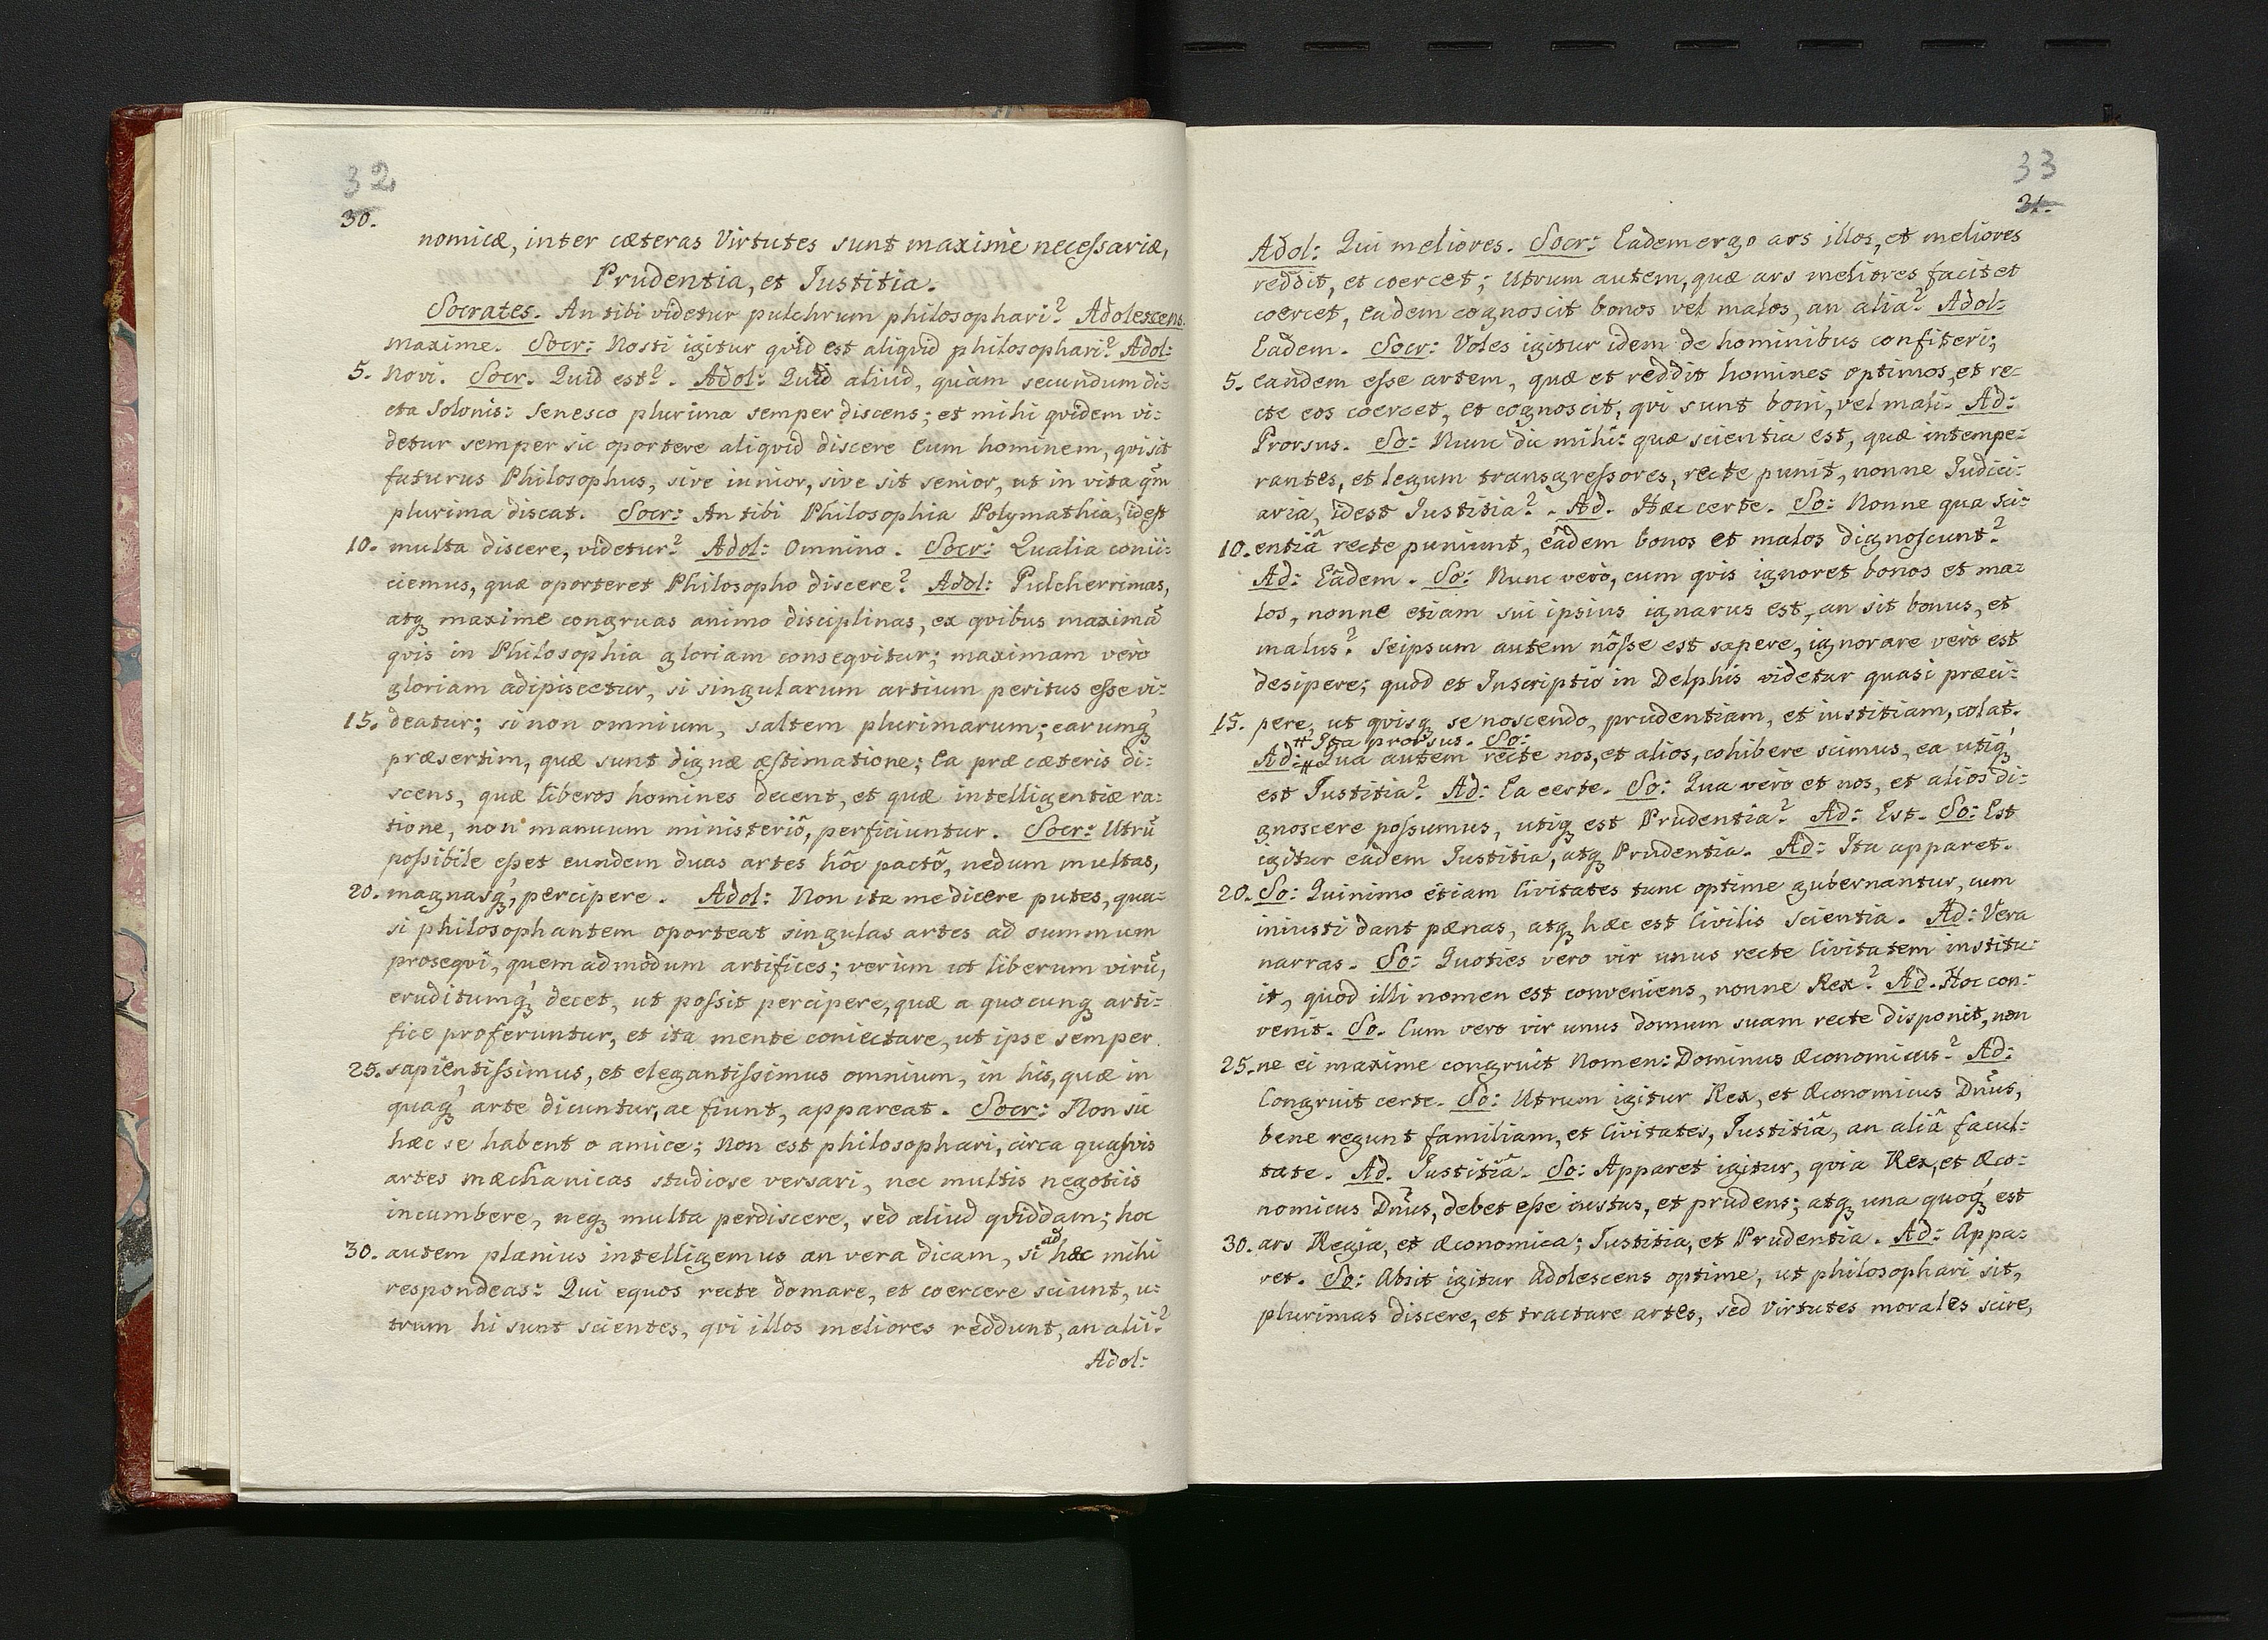 32
30.
nomicæ, inter cæteras Virtutes sunt maxime neceſsariæ,
Prudentia, et Iustitia.
Socrates. An tibi videtur pulchrum philosophari? Adolescens.
maxime. Socr: Nosti igitur qvid est aliqvid philosophari? Adol:
5. Novi. Socr. Quid est?. Adol: Quid aliud, quàm secundum di:
cta Solonis: Senesco plurima semper discens; et mihi qvidem vi:
detur semper sic oportere aliqvid discere Eum hominem, qvi sit
futurus Philosophus, sive iunior, sive sit senior, ut in vita qm̃
plurima discat. Socr: An tibi Philosophia Polymathia, idest
10. multa discere, videtur? Adol: Omnino. Socr: Qualia conii:
ciemus, quæ oporteret Philosopho discere? Adol: Pulcherrimas,
atq; maxime congruas animo disciplinas, ex qvibus maximã
qvis in Philosophia gloriam conseqvitur; maximam verò
gloriam adipiscetur, si singularum artium peritus eſse vi:
15. deatur; si non omnium, saltem plurimarum; earumq;
præsertim, quæ sunt dignæ æstimatione; Ea præ cæteris di:
scens, quæ liberos homines decent, et quæ intelligentiæ ra:
tione, non manuum ministeriô, perficiuntur. Socr: Utrũ
poſsibile eſset eundem duas artes hôc pactô, nedum multas,
20. magnasq;, percipere. Adol: Non ita me dicere putes, qua:
si philosophantem oporteat singulas artes ad summum
proseqvi, quemadmodum artifices; verùm ut liberum virũ,
eruditumq; decet, ut poſsit percipere, quæ a quocunq; arti:
fice proferuntur, et ita mente coniectare, ut ipse semper
25. sapientiſsimus, et elegantiſsimus omnium, in his, quæ in
quaq; arte dicuntur, ac fiunt, appareat. Socr: Non sic
hæc se habent o amice; Non est philosophari, circa quaſvis
artes mæchanicas studiose versari, nec multis negotiis
incumbere, neq; multa perdiscere, sed aliud qviddam; hoc
30. autem plænius intelligemus an vera dicam, si ad hæc mihi
respondeas: Qui equos recte domare, et coercere sciunt, u:
trum hi sunt scientes, qvi illos meliores reddunt, an alii?
Adol:
33
31.
Adol: Qui meliores. Socr: Eadem ergo ars illos, et meliores
reddit, et coercet; Utrum autem, quæ ars meliores facit et
coercet, Eadem cognoscit bonos vel malos, an alia? Adol:
Eadem. Socr: Voles igitur idem de hominibus confiteri;
5. eandem eſse artem, quæ et reddit homines optimos, et re:
cte eos coercet, et cognoscit, qvi sunt boni, vel mali. Ad:
Prorsus. So: Nunc dic mihi: quæ scientia est, quæ intempe:
rantes, et legum transgreſsores, recte punit, nonne Iudici:
aria, idest Iustitia?. Ad. Hæc certe. So: Nonne qua sci:
10. entiâ recte puniunt, eâdem bonos et malos dignoſcunt?
Ad: Eâdem. So: Nunc verò, cum qvis ignoret bonos et ma:
los, nonne etiam sui ipsius ignarus est, an sit bonus, et
malus? Seipsum autem nôſse est sapere, ignorare verò est
desipere; quod et Inscriptio in Delphis videtur quasi præci:
15. pere, ut qvisq; se noscendo, prudentiam, et iustitiam, colat.
# Ita prorsus. So:
Ad: # Qua autem recte nos, et alios, cohibere scimus, ea utiq;
est Iustitia? Ad: Ea certe. So: Qua verò et nos, et alios di:
gnoscere poſsumus, utiq; est Prudentia? Ad: Est. So: Est
igitur eadem Iustitia, atq; Prudentia. Ad: Ita apparet.
20. So: Quinimo etiam Civitates tunc optime gubernantur, cum
iniusti dant pænas, atq; hæc est Civilis Scientia. Ad: Vera
narras. So: Quoties vero vir unus recte Civitatem institu:
it, quod illi nomen est conveniens, nonne Rex? Ad. Hoc con:
venit. So. Cum vero vir unus domum suam recte disponit, non
25. ne ei maxime congruit Nomen: Dominus Œconomicus? Ad:
Congruit certe. So: Utrum igitur Rex, et Œconomicus Dnũs,
bene regunt familiam, et Civitates, Iustitiâ, an aliâ facul:
tate. Ad. Iustitiâ. So: Apparet igitur, qvia Rex, et Œco:
nomicus Dnũs, debet eſse iustus, et prudens; atq; una quoq; est
30. ars Regia, et Œconomica; Iustitia, et Prudentia. Ad: Appa:
ret. So: Absit igitur Adolescens optime, ut philosophari sit,
plurimas discere, et tractare artes, sed Virtutes morales scire,